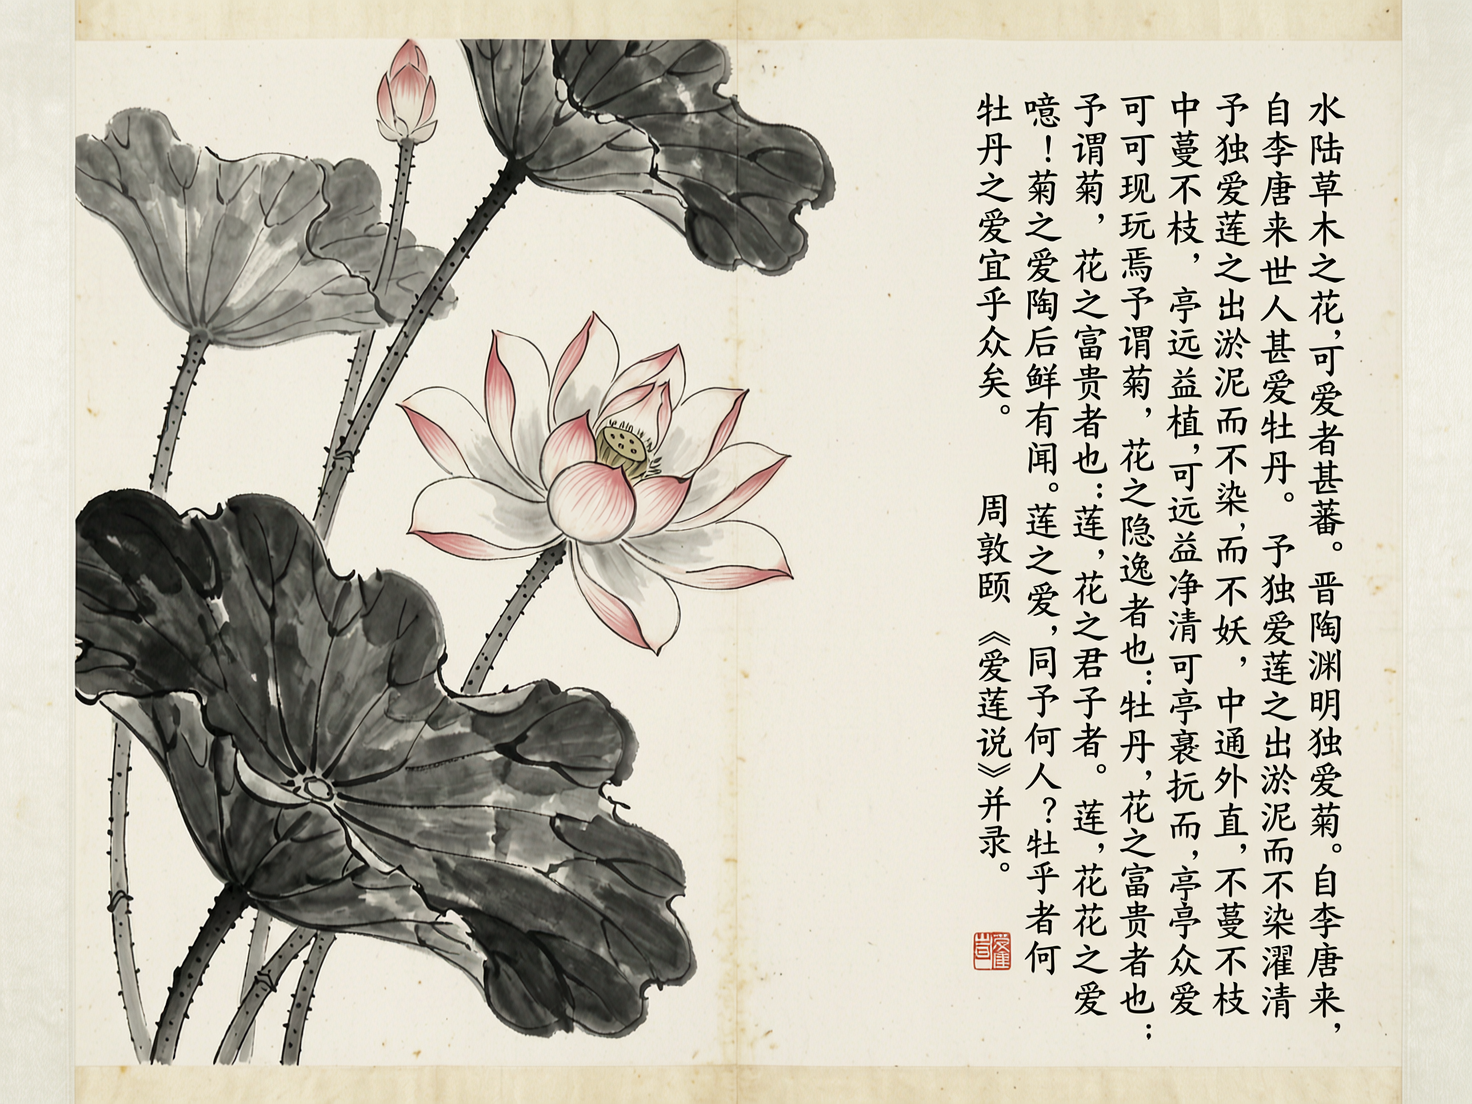 水陆草木之花，可爱者甚蕃。晋陶渊明独爱菊。自李唐来，
自李唐来世人甚爱牡丹。予独爱莲之出淤泥而不染濯清
予独爱莲之出淤泥而不染，而不妖，中通外直，不蔓不枝
中蔓不枝，亭远益植，可远益净清可亭裹抏而，亭亭众爱
可可现玩焉予谓菊，花之隐逸者也：牡丹，花之富贵者也；
予谓菊，花之富贵者也：莲，花之君子者。莲，花花之爱
噫！菊之爱陶后鲜有闻。莲之爱，同予何人？牡乎者何
牡丹之爱宜乎众矣。周敦颐《爱莲说》并录。